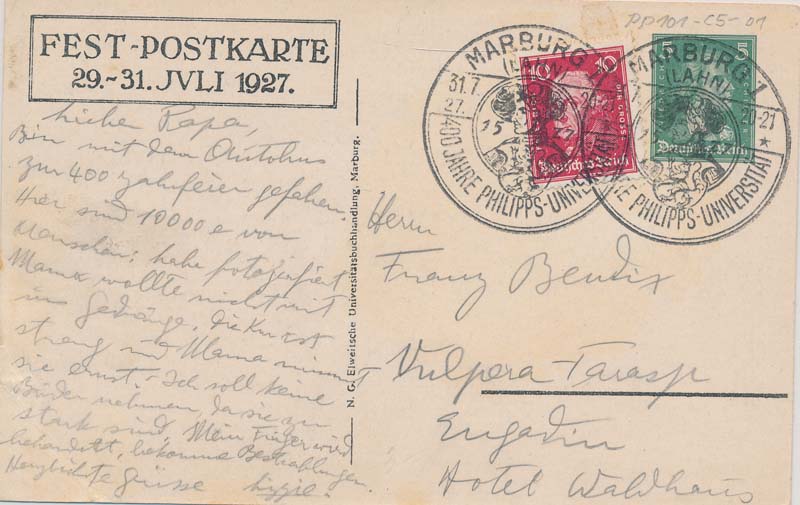 PP101-C5-01
FEST-POSTKARTE
29.-31. JVLI 1927.
MARBURG 1
(LAHN)
31.7.
27.
400 JAHRE PHILIPPS-UNIVERSITÄT
15 27
10 10
Deutsches Reich
MARBURG 1
(LAHN)
20-21
400 JAHRE PHILIPPS-UNIVERSITÄT
5 5
Deutsches Reich
Lieber Papa,
Bin mit dem Autobus
zur 400 Jahrfeier gefahren.
Hier sind 10000 e von
Menschen; habe fotografiert
Mama wollte nicht mit
ins Gedränge, die Kur ist
streng und Mama nimmt
sie ernst. Ich soll keine
Bäder nehmen, da sie zu
stark sind. Mein Finger wird
behandelt, bekomme Bestrahlungen.
Herzlichste Grüsse
N. G. Elwertsche Universitätsbuchhandlung, Marburg.
Herrn
Franz Bendix
Vulpera-Tarasp
Engadin
Hotel Waldhaus